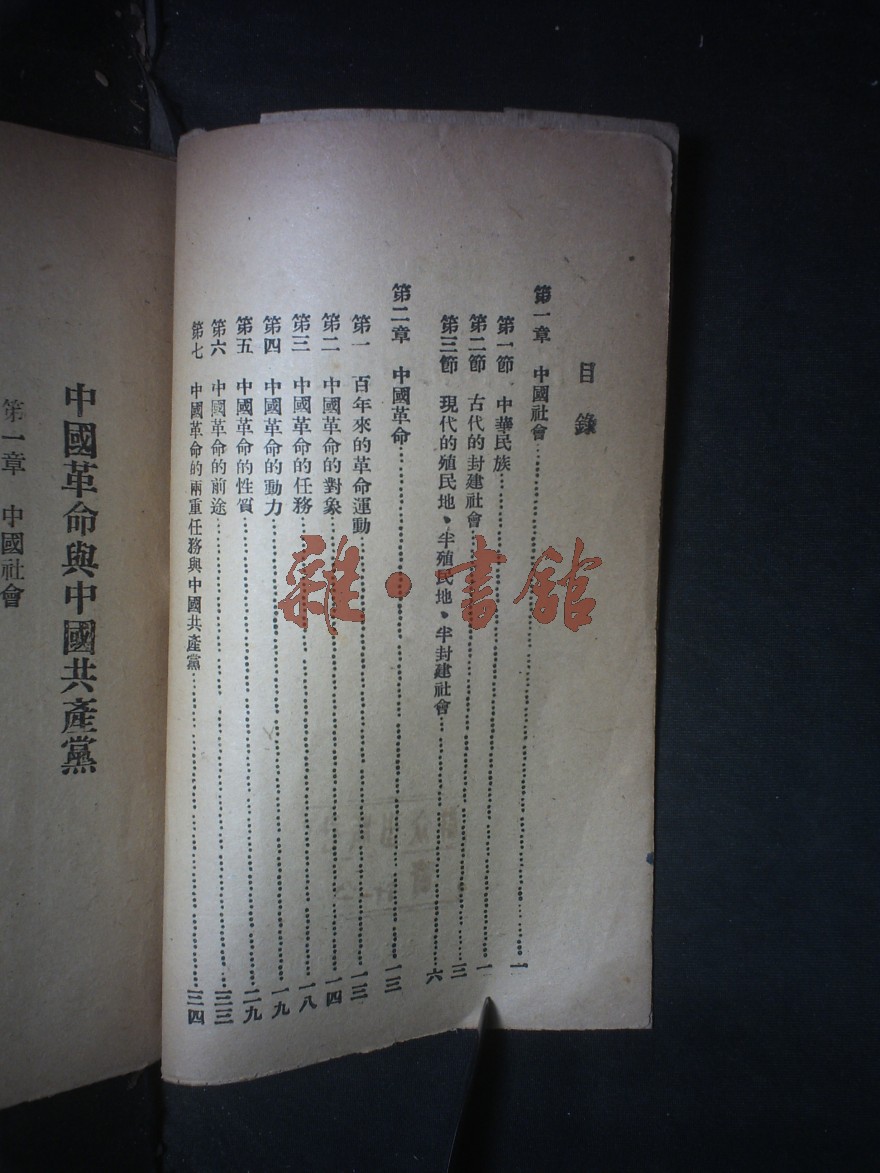 目錄
第一章　中國社會……一
第一節　中華民族……一
第二節　古代的封建社會……三
第三節　現代的殖民地・半殖民地・半封建社會……六
第二章　中國革命……一三
第一　百年來的革命運動……一三
第二　中國革命的對象……一四
第三　中國革命的任務……一八
第四　中國革命的動力……一九
第五　中國革命的性質……二九
第六　中國革命的前途……三三
第七　中國革命的兩重任務與中國共產黨……三四
中國革命與中國共產黨
第一章　中國社會
雜・書館